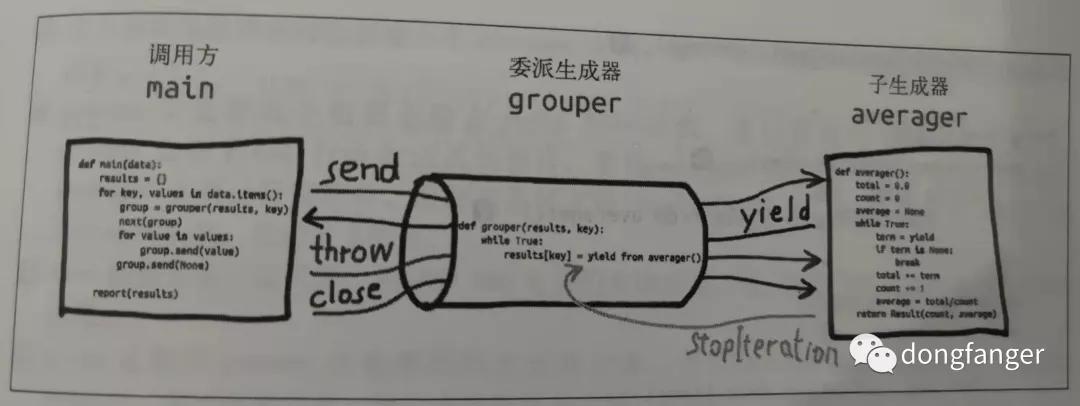 调用方
main
def main(data):
    results = {}
    for key, values in data.items():
        group = grouper(results, key)
        next(group)
        for value in values:
            group.send(value)
        group.send(None)
    report(results)
send
throw
close
委派生成器
grouper
def grouper(results, key):
    while True:
        results[key] = yield from averager()
yield
stopIteration
子生成器
averager
def averager():
    total = 0.0
    count = 0
    average = None
    while True:
        term = yield
        if term is None:
            break
        total += term
        count += 1
        average = total/count
    return Result(count, average)
dongfanger